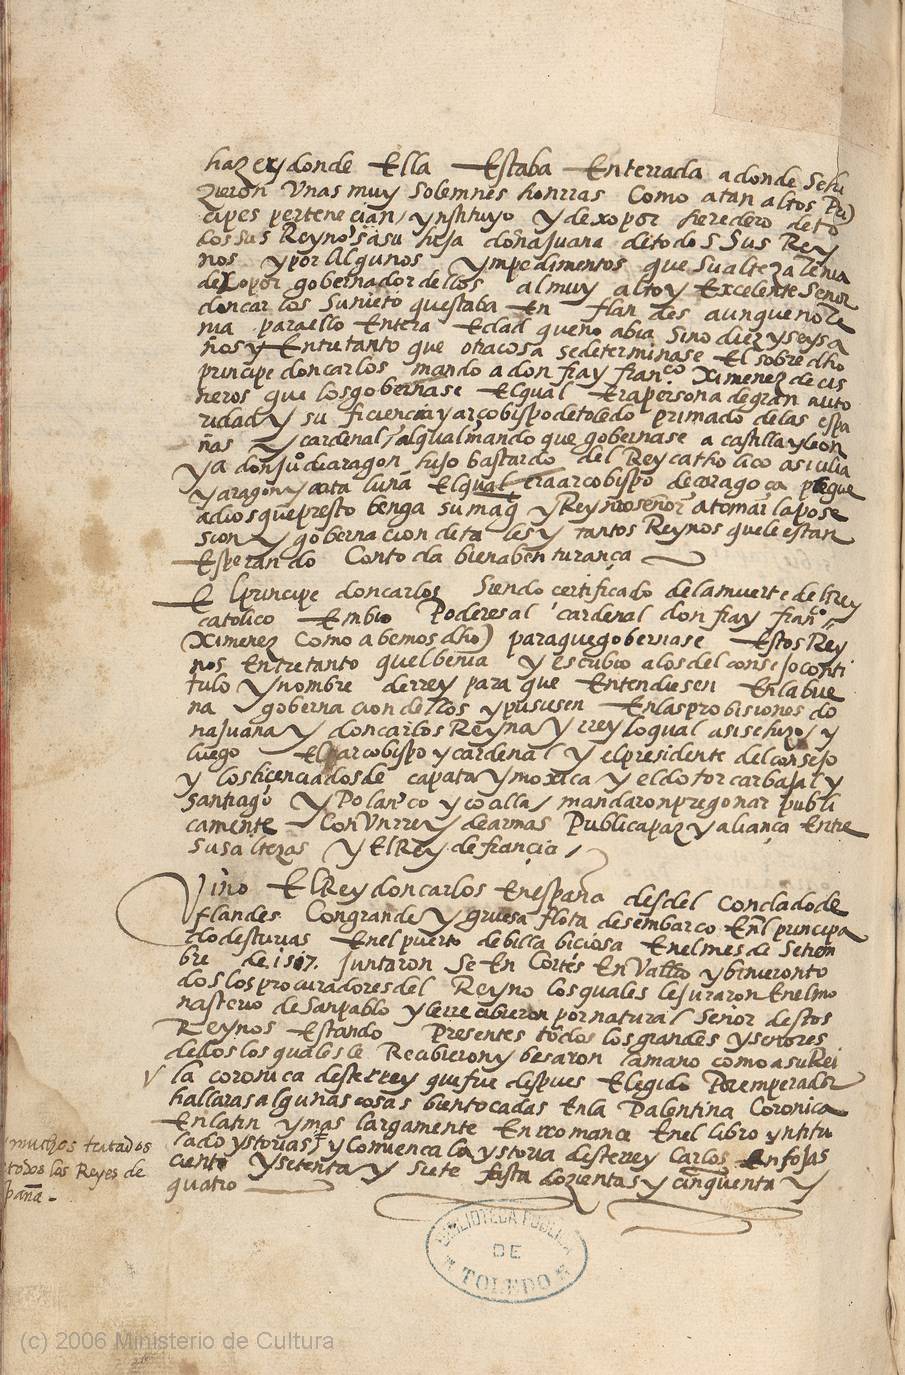 hazer y donde Ella Estaba Enterrada a donde se hi
zieron Unas muy Solemnes honrras Como a tan altos Prī
cipes pertenecian, ynstituyo y dexo por heredero de to
dos sus Reynos a su hija doña juana de todos Sus Rey
nos y por Algunos ympedimentos que Su alteza Tenia
dexo por gobernador dellos al muy alto y Excelente Señor
don carlos Su nieto questaba En flandes aunque no te
nia para ello Entera Edad que no abia Sino diez y seys a
ños y Entretanto que otra cosa se determinase El sobre dho
principe don carlos mando a don fray franco. Ximenez de cis
neros que los gobernase El qual Era persona de gran auto
ridad y suficiencia y arçobispo de toledo primado de las espa
ñas y cardenal, al qual mando que gobernase a castilla y leon
y a don juo de aragon hijo bastardo del Rey catholico a sicilia
y aragon y cataluña El qual era arcobispo de çaragoça plegue
a dios que presto benga su magd y Rey nro señor a tomar la pose
sion y gobernacion de tales y tantos Reynos que le estan
Esperando Con toda bienabenturança
El principe don carlos Siendo certificado de la muerte del rey
catolico Embio Poderes al cardenal don fray franco.
(Ximenez Como abemos dho) para que gobernase Estos Rey
nos Entretanto quel benia y escribio a los del consejo con ti
tulo y nombre de rrey para que Entendiesen En la bue
na gobernacion dellos y pusiesen En las probisiones do
na juana y don carlos Reyna y rrey lo qual asi se hizo, y
luego El arcobispo y cardenal y el presidente del consejo
y los licenciados de capata y moxica y el dotor carbajal y
santiago y Polanco y coalla, mandaron pregonar publi
camente Con Un rrey de armas Publica paz y aliança Entre
sus altezas y El Rey de francia,
Vino El Rey don carlos En españa desdel condado de
flandes Con grande y gruesa flota desembarco En l principa
do desturias En el puerto de billa biciosa En el mes de Setiem
bre de 1517. Juntaron Se En Cortes En Vallid y binieron to
dos los procuradores del Reyno los quales le juraron En el mo
nasterio de San pablo y le rrecibieron por natural Señor destos
Reynos Estando Presentes todos los grandes y señores
dellos los quales le Recibieron y besaron la mano como a su Rei
V la coronica deste rrey que fue despues Elegido Por emperador
hallaras algunas cosas bien tocadas En la Palentina Coronica
En latin y mas largamente En rromance En el libro yntitu
lado ystorias, y Comienca la ystoria deste rrey Carlos En fojas
ciento y setenta y siete fasta dozientas y cinquenta y
quatro
muchos tratados
todos los Reyes de
spaña.
BIBLIOTECA PUBLICA
DE
TOLEDO
(c) 2006 Ministerio de Cultura